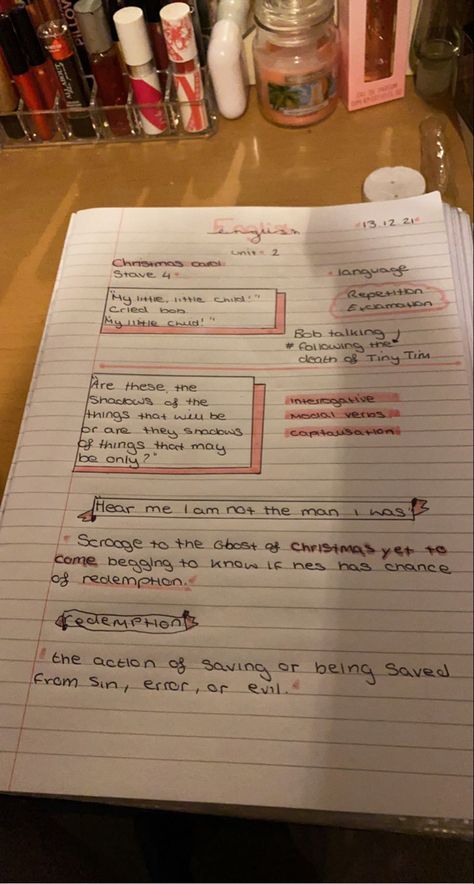 English
13.12.21
unit 2
Christmas carol
Stave 4
language
"My little, little child!"
Cried bob.
My little child! "
Repetition
Exclamation
Bob talking
# following the
death of Tiny Tim
"Are these, the
Shadows of the
things that will be
or are they shadows
of things that may
be only?"
interrogative
modal verbs
capitalisation
"Hear me I am not the man I was"
Scrooge to the Ghost of Christmas yet to
come begging to know if hes has chance
of redemption.
redemption
the action of saving or being saved
from sin, error, or evil.